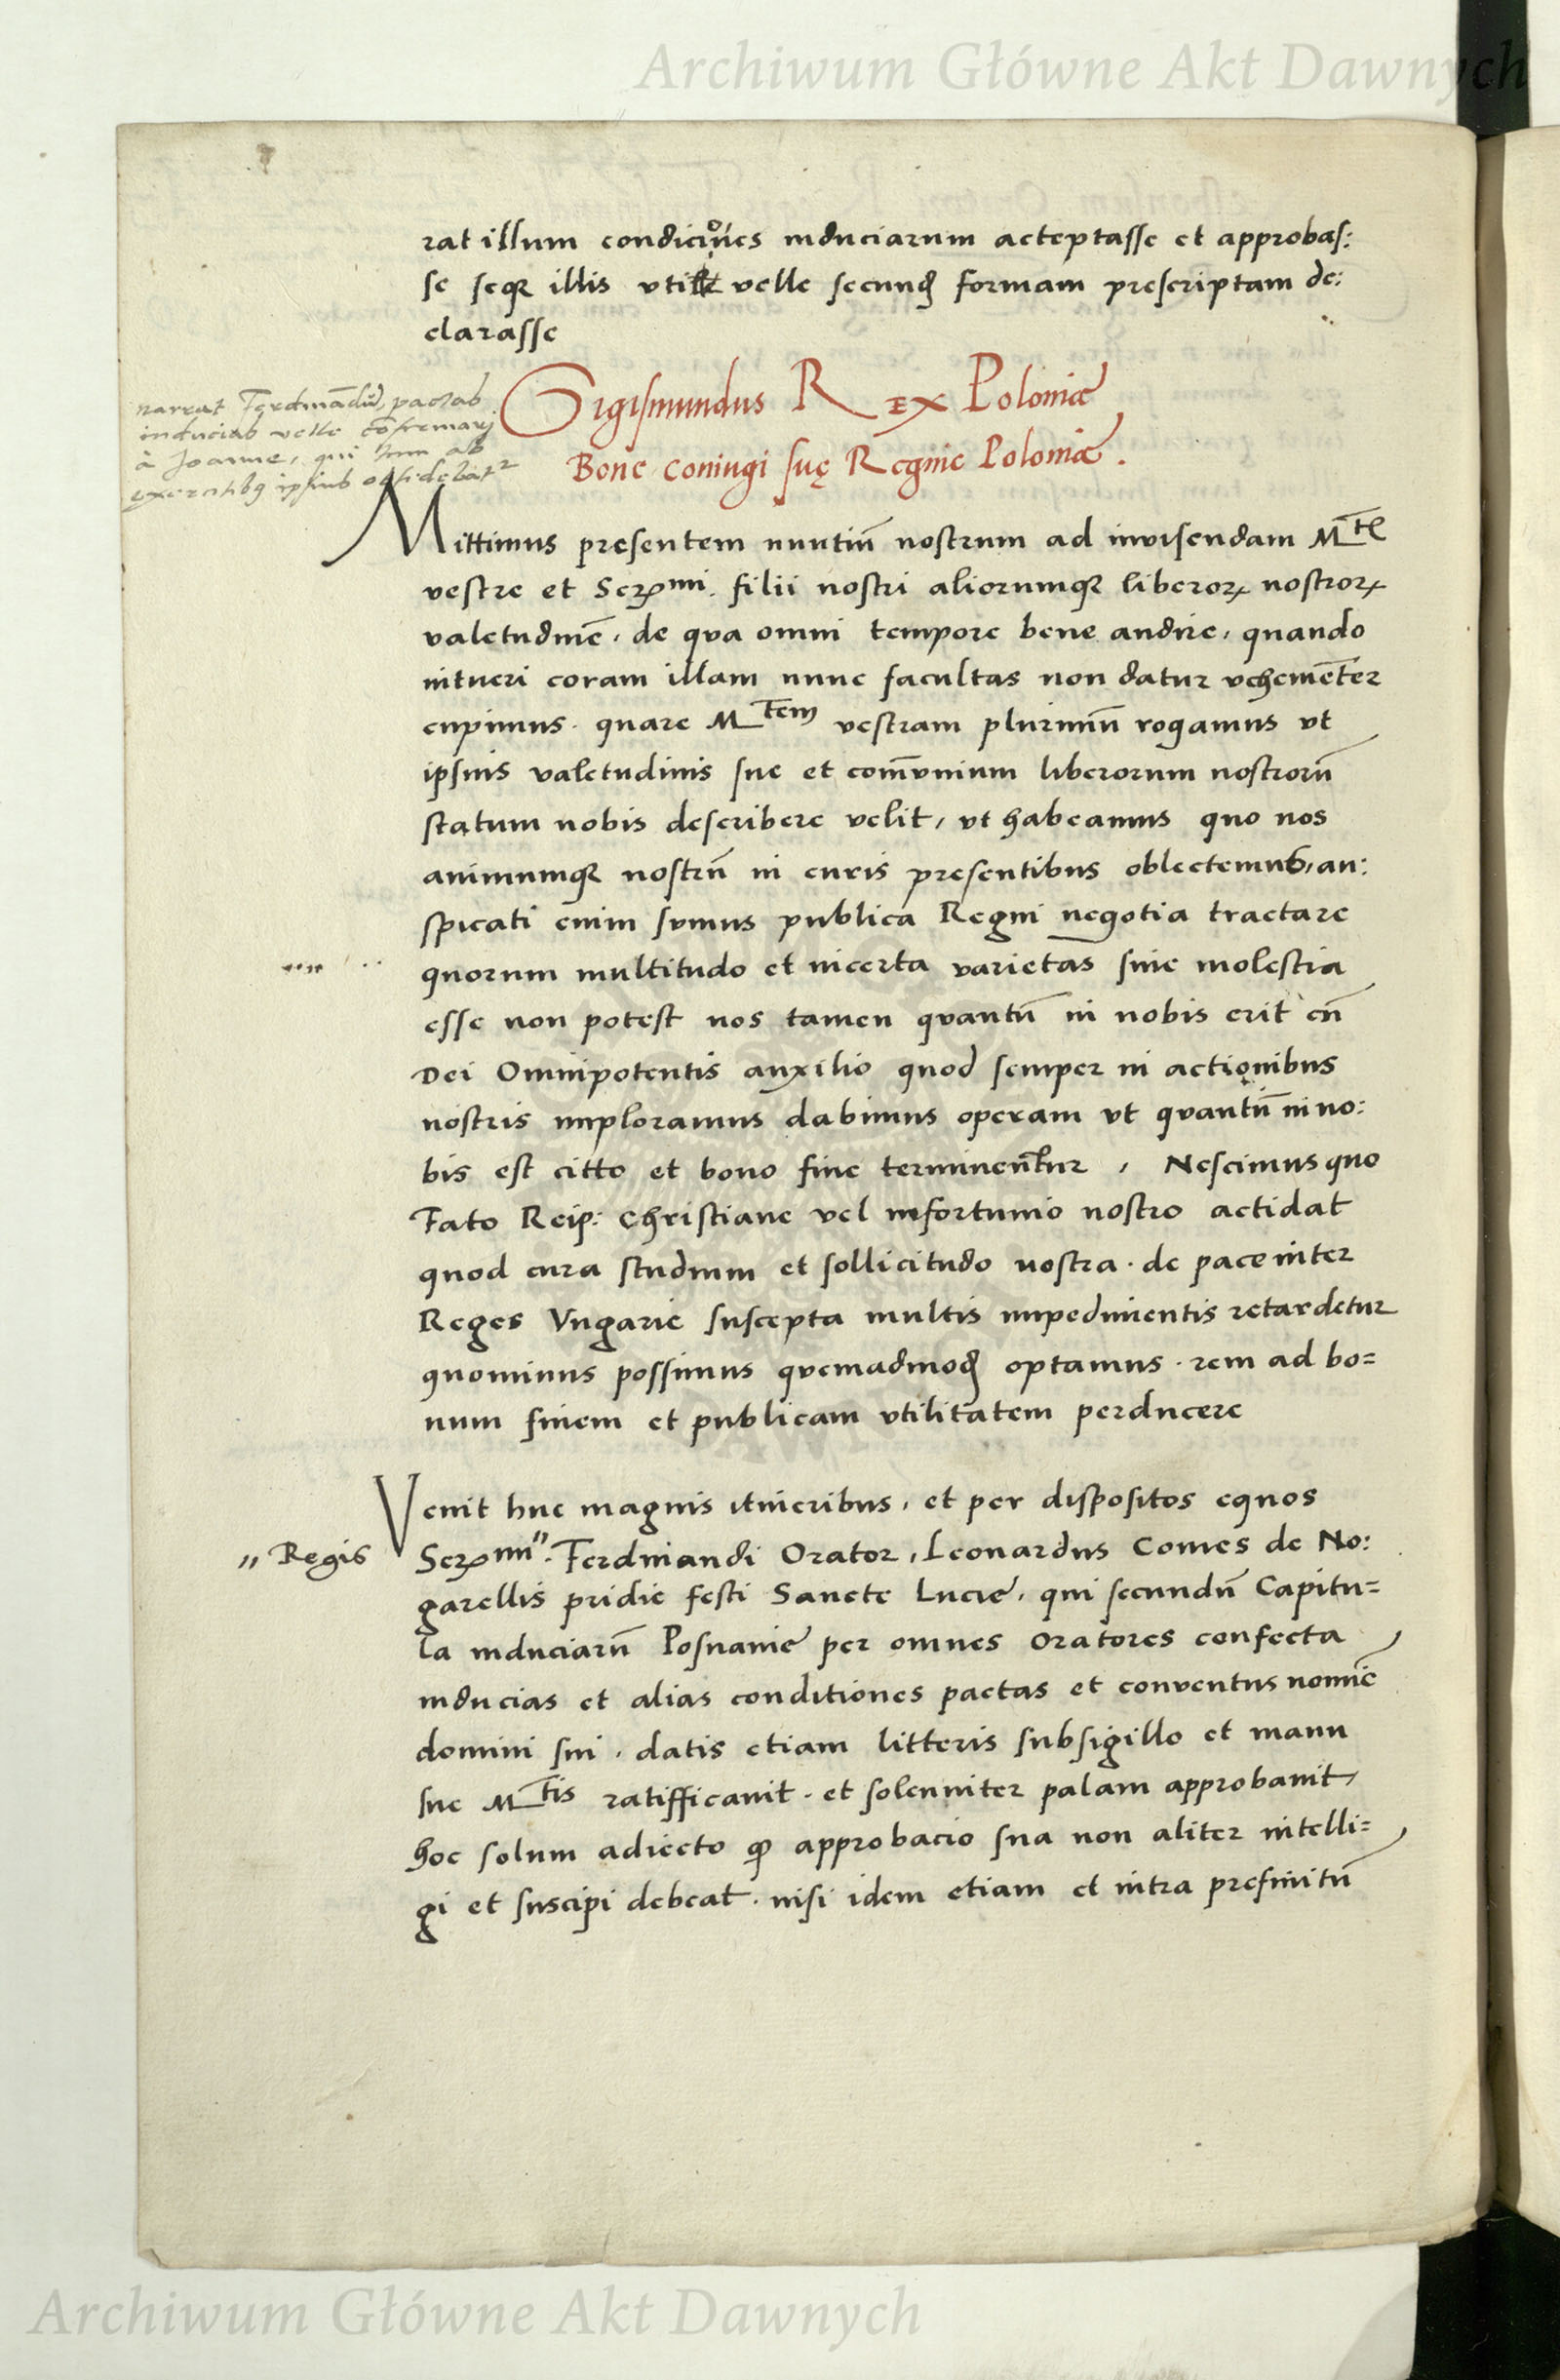 Archiwum Główne Akt Dawnych
rat illum condiciones induciarum acceptasse et approbas:
se seqꝫ illis uti velle secundꝫ formam prescriptam de:
clarasse
narrat Ferdinādū pactas
inducias velle cōfirmari
à Joanne, qui tum ab
exercitibꝫ ipsius obsidebatᵘʳ
Sigismundus REX Poloniæ
Bone coniugi suę Reginæ Poloniæ.
Mittimus presentem nuntiū nostrum ad invisendam Mᵗᵉ
vestre et Serᵐⁱ. filii nostri aliorumqꝫ liberoꝝ nostroꝝ
valetudinē, de qva omni tempore bene audire, quando
intueri coram illam nunc facultas non datur vehemēter
cupimus. quare Mᵗᵉᵐ vestram plurimū rogamus vt
ipsius valetudinis sue et com̄vnium liberorum nostrorū
statum nobis describere velit, vt habeamus quo nos
animumqꝫ nostrū in curis presentibus oblectemus, au:
spicati enim sumus publica Regni negotia tractare
quorum multitudo et incerta varietas sine molestia
esse non potest nos tamen qvantū in nobis erit cū
Dei Omnipotentis auxilio quod semper in actionibus
nostris imploramus dabimus operam vt qvantū in no:
bis est citto et bono fine terminentur, Nescimus quo
Fato Reip: Christiane vel infortunio nostro accidat
quod cura studium et sollicitudo nostra. de pace inter
Reges Vngarie suscepta multis impedimentis retardetur
quominus possimus qvemadmodꝫ optamus. rem ad bo=
num finem et publicam vtilitatem perducere
Venit huc magnis itineribus, et per dispositos equos
„ Regis
Serᵐⁱ". Ferdinandi Orator, Leonardus Comes de No:
garellis pridie festi Sancte Lucie, qui secundū Capitu=
la induciarū Posnanie per omnes oratores confecta
inducias et alias conditiones pactas et conventus nomiē
domini sui. datis etiam litteris sub sigillo et manu
sue Mᵗⁱˢ ratifficavit. et solenniter palam approbavit,
hoc solum adiecto ꝙ approbacio sua non aliter intelli=
gi et suscipi debeat. nisi idem etiam et intra prefinitū
Archiwum Główne Akt Dawnych